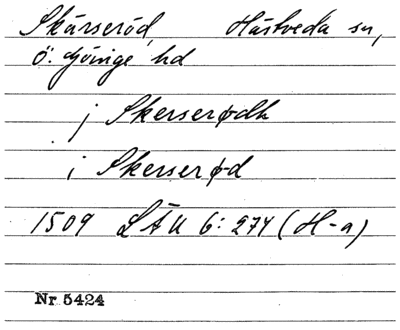 Skärseröd, Hästveda sn,
Ö. Göinge hd
j Skerserødh
i Skerserød
1509 LÄU 6: 274 (H-a)
Nr 5424